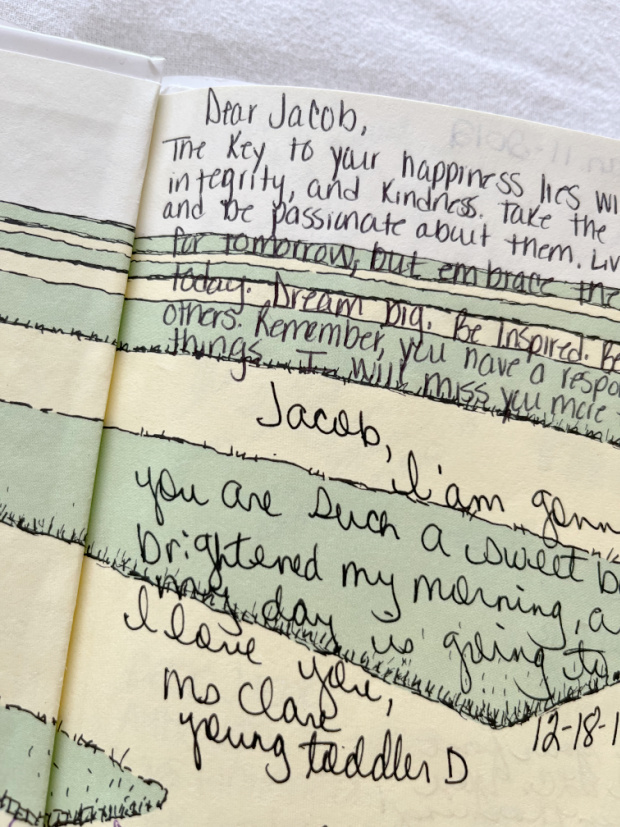 Dear Jacob,
The key to your happiness lies wi
integrity, and kindness. Take the
and be passionate about them. Liv
for tomorrow, but embrace the
today. Dream big. Be Inspired. Be
others. Remember, you have a respo
things. I will miss you more
Jacob, I'am gonn
you are such a sweet b
brightened my morning, a
my day is going to
I love you,
Ms Clare
young toddler D
12-18-1